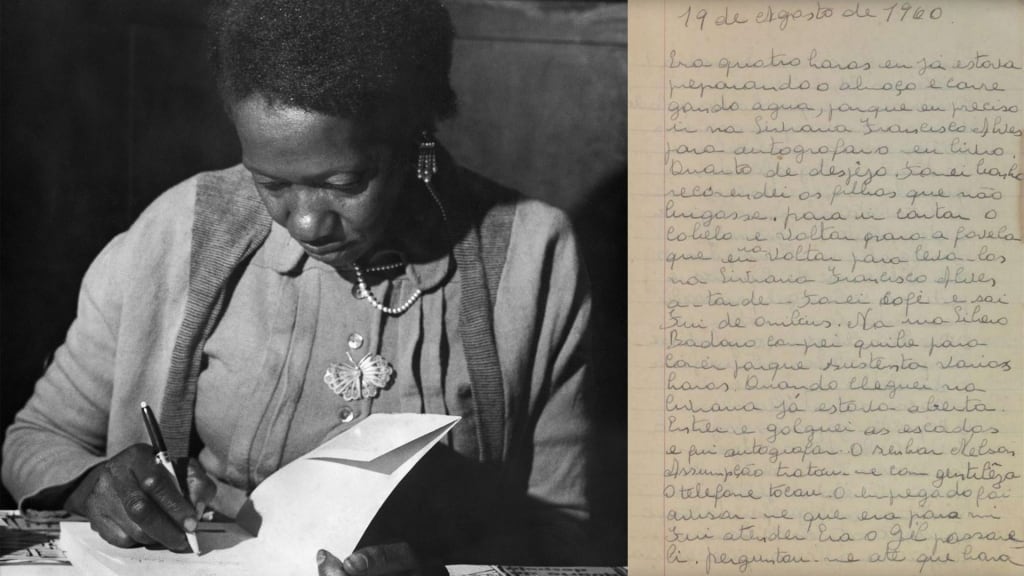 19 de Agosto de 1960.
Era quatro horas eu já estava
preparando o almoço e carre
gando agua, porque eu preciso
ir na Livraria Francisco Alves
para autografar o eu livro.
Quanto de desjejo. Banho
recomendei os filhos que não
brigasse. para ir cortar o
cabelo e voltar para a favela
que eu vou voltar para leva-los
na Livraria Francisco Alves
a tarde. Tomei café e sai
Fui de onibus. Na rua Libero
Badaro comprei quibe para
comer porque sustenta varias
horas. Quando cheguei na
livraria já estava aberta.
Entrei e galguei as escadas
e fui autografar. O senhor Nelson
Assumpção tratou-me com gentilêza
O telefone tocou. O empregado foi
avisar-me que era para mi
Fui atender. Era o Gil passare-
li. perguntou-me até que hora